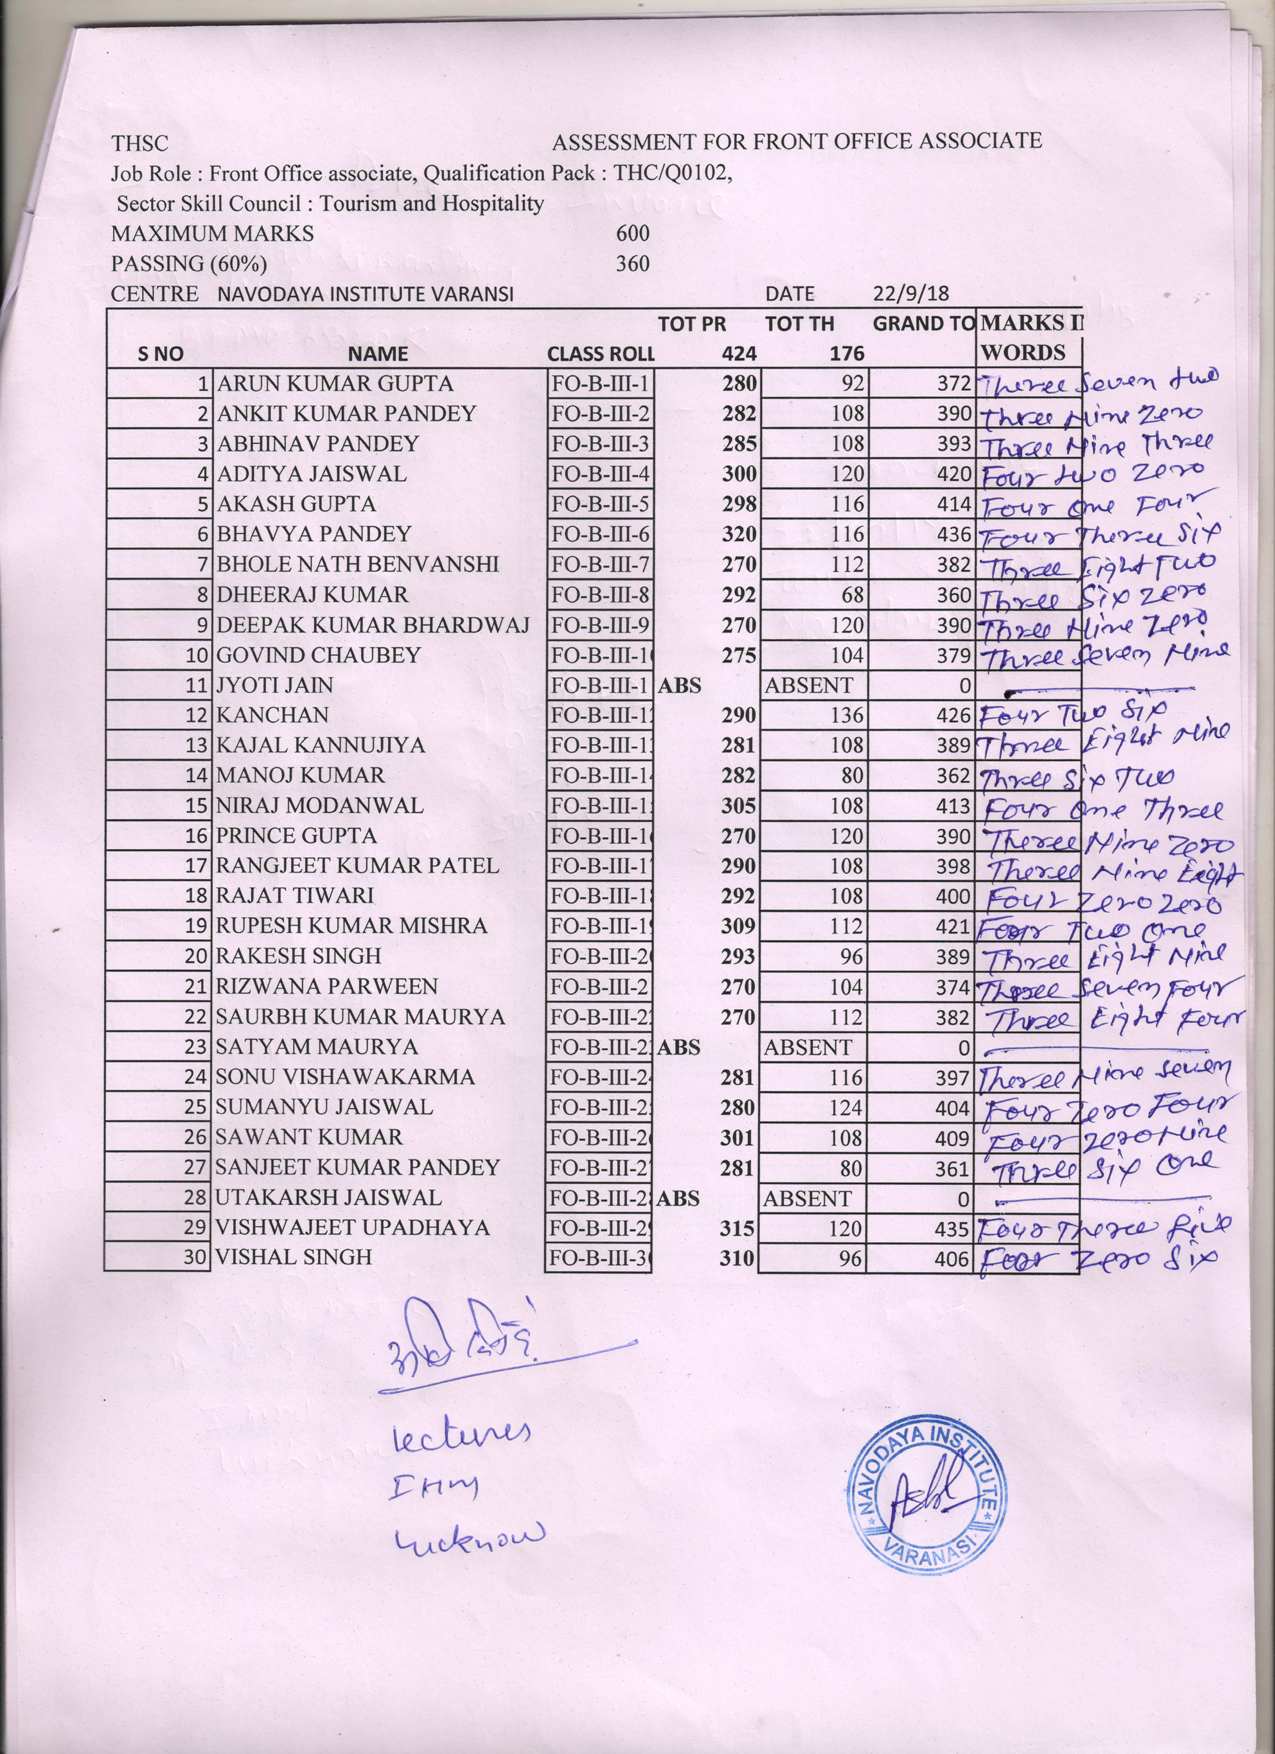 THSC ASSESSMENT FOR FRONT OFFICE ASSOCIATE
Job Role : Front Office associate, Qualification Pack : THC/Q0102,
Sector Skill Council : Tourism and Hospitality
MAXIMUM MARKS 600
PASSING (60%) 360
CENTRE NAVODAYA INSTITUTE VARANSI DATE 22/9/18
TOT PR TOT TH GRAND TO MARKS I
S NO NAME CLASS ROLL 424 176 WORDS
1 ARUN KUMAR GUPTA FO-B-III-1 280 92 372 Theree Seven two
2 ANKIT KUMAR PANDEY FO-B-III-2 282 108 390 Three Nine Zero
3 ABHINAV PANDEY FO-B-III-3 285 108 393 Three Nine Three
4 ADITYA JAISWAL FO-B-III-4 300 120 420 Four two Zero
5 AKASH GUPTA FO-B-III-5 298 116 414 Four One Four
6 BHAVYA PANDEY FO-B-III-6 320 116 436 Four Theree Six
7 BHOLE NATH BENVANSHI FO-B-III-7 270 112 382 Three Eight Two
8 DHEERAJ KUMAR FO-B-III-8 292 68 360 Three Six Zero
9 DEEPAK KUMAR BHARDWAJ FO-B-III-9 270 120 390 Three Nine Zero
10 GOVIND CHAUBEY FO-B-III-1 275 104 379 Three Seven Nine
11 JYOTI JAIN FO-B-III-1 ABS ABSENT 0
12 KANCHAN FO-B-III-1 290 136 426 Four Two Six
13 KAJAL KANNUJIYA FO-B-III-1 281 108 389 Three Eight Nine
14 MANOJ KUMAR FO-B-III-1 282 80 362 Three Six Two
15 NIRAJ MODANWAL FO-B-III-1 305 108 413 Four One Three
16 PRINCE GUPTA FO-B-III-1 270 120 390 Theree Nine Zero
17 RANGJEET KUMAR PATEL FO-B-III-1 290 108 398 Theree Nine Eight
18 RAJAT TIWARI FO-B-III-1 292 108 400 Four Zero Zero
19 RUPESH KUMAR MISHRA FO-B-III-1 309 112 421 Four Two One
20 RAKESH SINGH FO-B-III-2 293 96 389 Three Eight Nine
21 RIZWANA PARWEEN FO-B-III-2 270 104 374 Three Seven Four
22 SAURBH KUMAR MAURYA FO-B-III-2 270 112 382 Three Eight Four
23 SATYAM MAURYA FO-B-III-2 ABS ABSENT 0
24 SONU VISHAWAKARMA FO-B-III-2 281 116 397 Theree Nine Seven
25 SUMANYU JAISWAL FO-B-III-2 280 124 404 Four Zero Four
26 SAWANT KUMAR FO-B-III-2 301 108 409 Four Zero Nine
27 SANJEET KUMAR PANDEY FO-B-III-2 281 80 361 Three Six One
28 UTAKARSH JAISWAL FO-B-III-2 ABS ABSENT 0
29 VISHWAJEET UPADHAYA FO-B-III-2 315 120 435 Four Theree five
30 VISHAL SINGH FO-B-III-3 310 96 406 Four Zero Six
lectures
IHM
Lucknow
NAVODAYA INSTITUTE
VARANASI